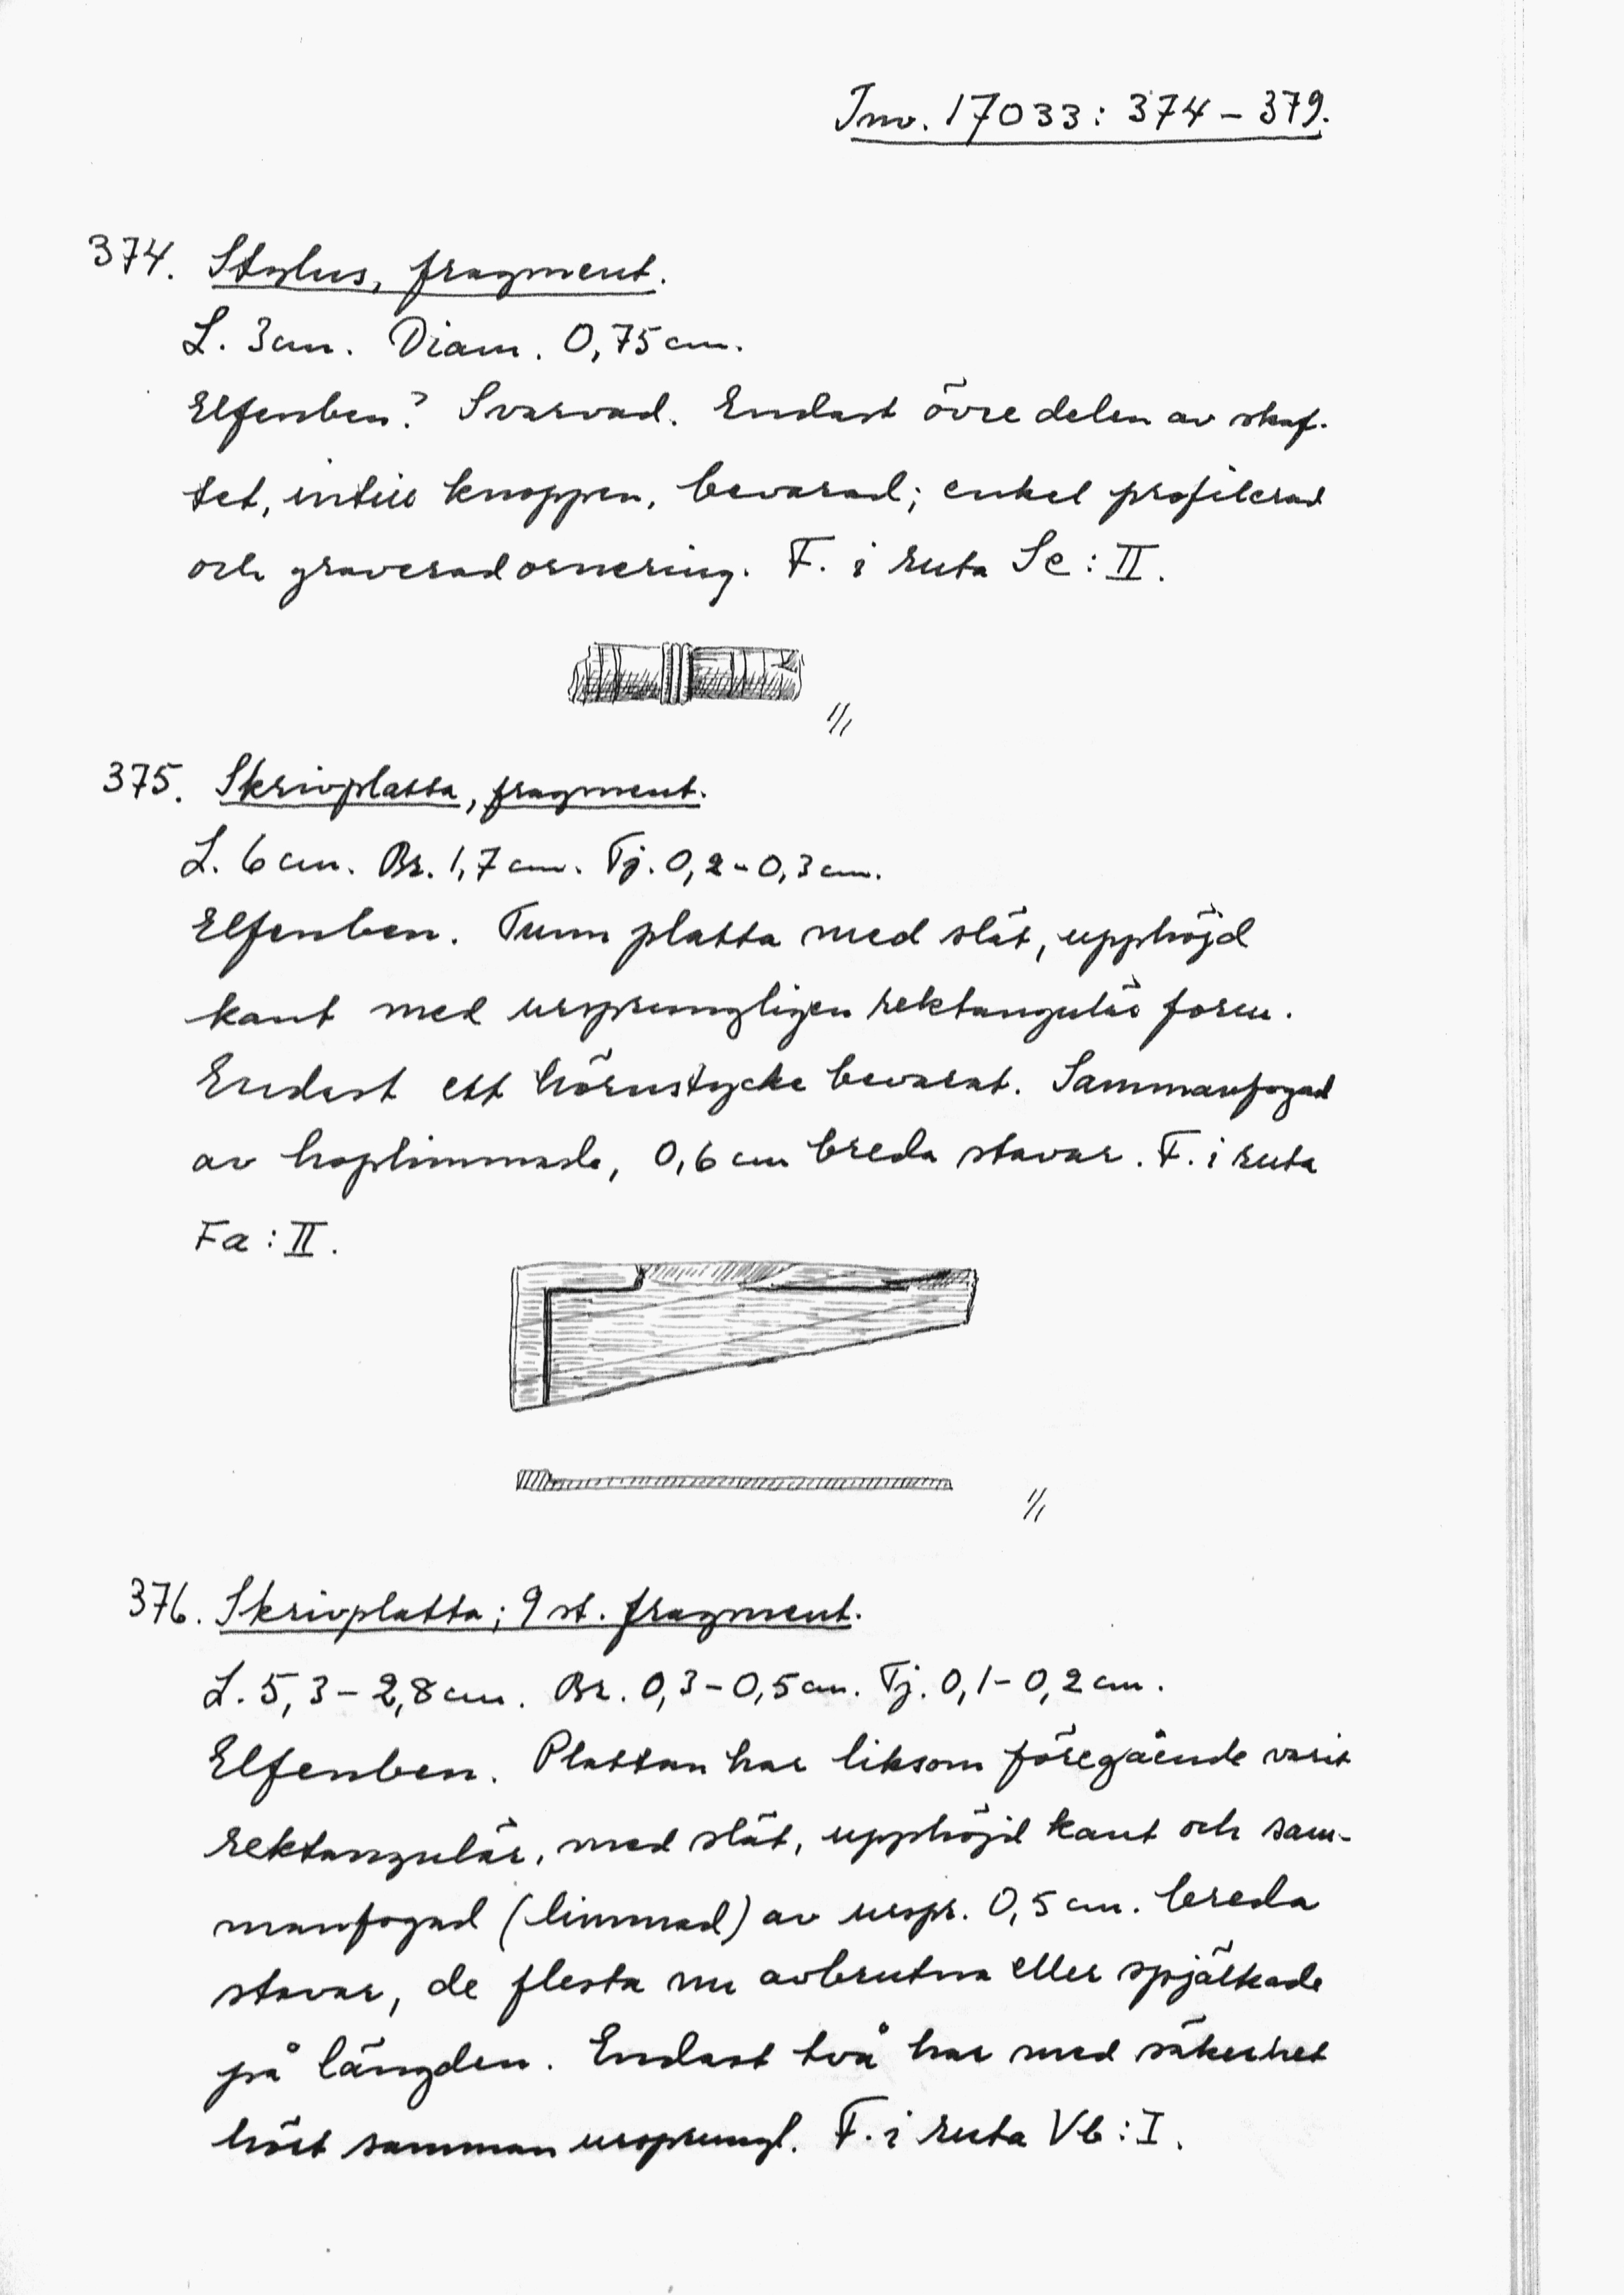 Inv. 17033: 374 – 379.
374. Stylus, fragment.
L. 3 cm. Diam. 0,75 cm.
Elfenben? Svarvad. Endast övre delen av skaf-
tet, intill knoppen, bevarad; enkel profilerad
och graverad ornering. F. i ruta Sc: II.
1/1
375. Skrivplatta, fragment.
L. 6 cm. Br. 1,7 cm. Tj. 0,2 - 0,3 cm.
Elfenben. Tunn platta med slät, upphöjd
kant med ursprungligen rektangulär form.
Endast ett hörnstycke bevarat. Sammanfogad
av hoplimmade, 0,6 cm breda stavar. F. i ruta
Fa: II.
1/1
376. Skrivplatta; 9 st. fragment.
L. 5,3 – 2,8 cm. Br. 0,3 – 0,5 cm. Tj. 0,1 – 0,2 cm.
Elfenben. Plattan har liksom föregående varit
rektangulär, med slät, upphöjd kant och sam-
manfogad (limmad) av urspr. 0,5 cm. breda
stavar, de flesta nu avbrutna eller spjälkade
på längden. Endast två har med säkerhet
hört samman ursprungl. F. i ruta Vb: I.